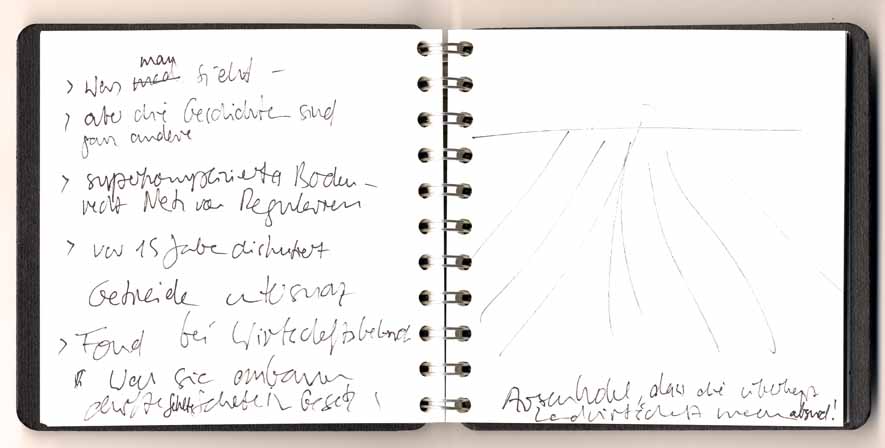 man
> was sieht –
> aber die Geschichten sind
ganz andere
> superkomplizierta Boden–
recht Netz von Regularien
> vor 15 Jahre diskutiert
Getreide
> Fond bei Wirtschaftsbehörd
Was sie anbauen
Gesetz
dass die überhaupt
Landwirtschaft absurd!